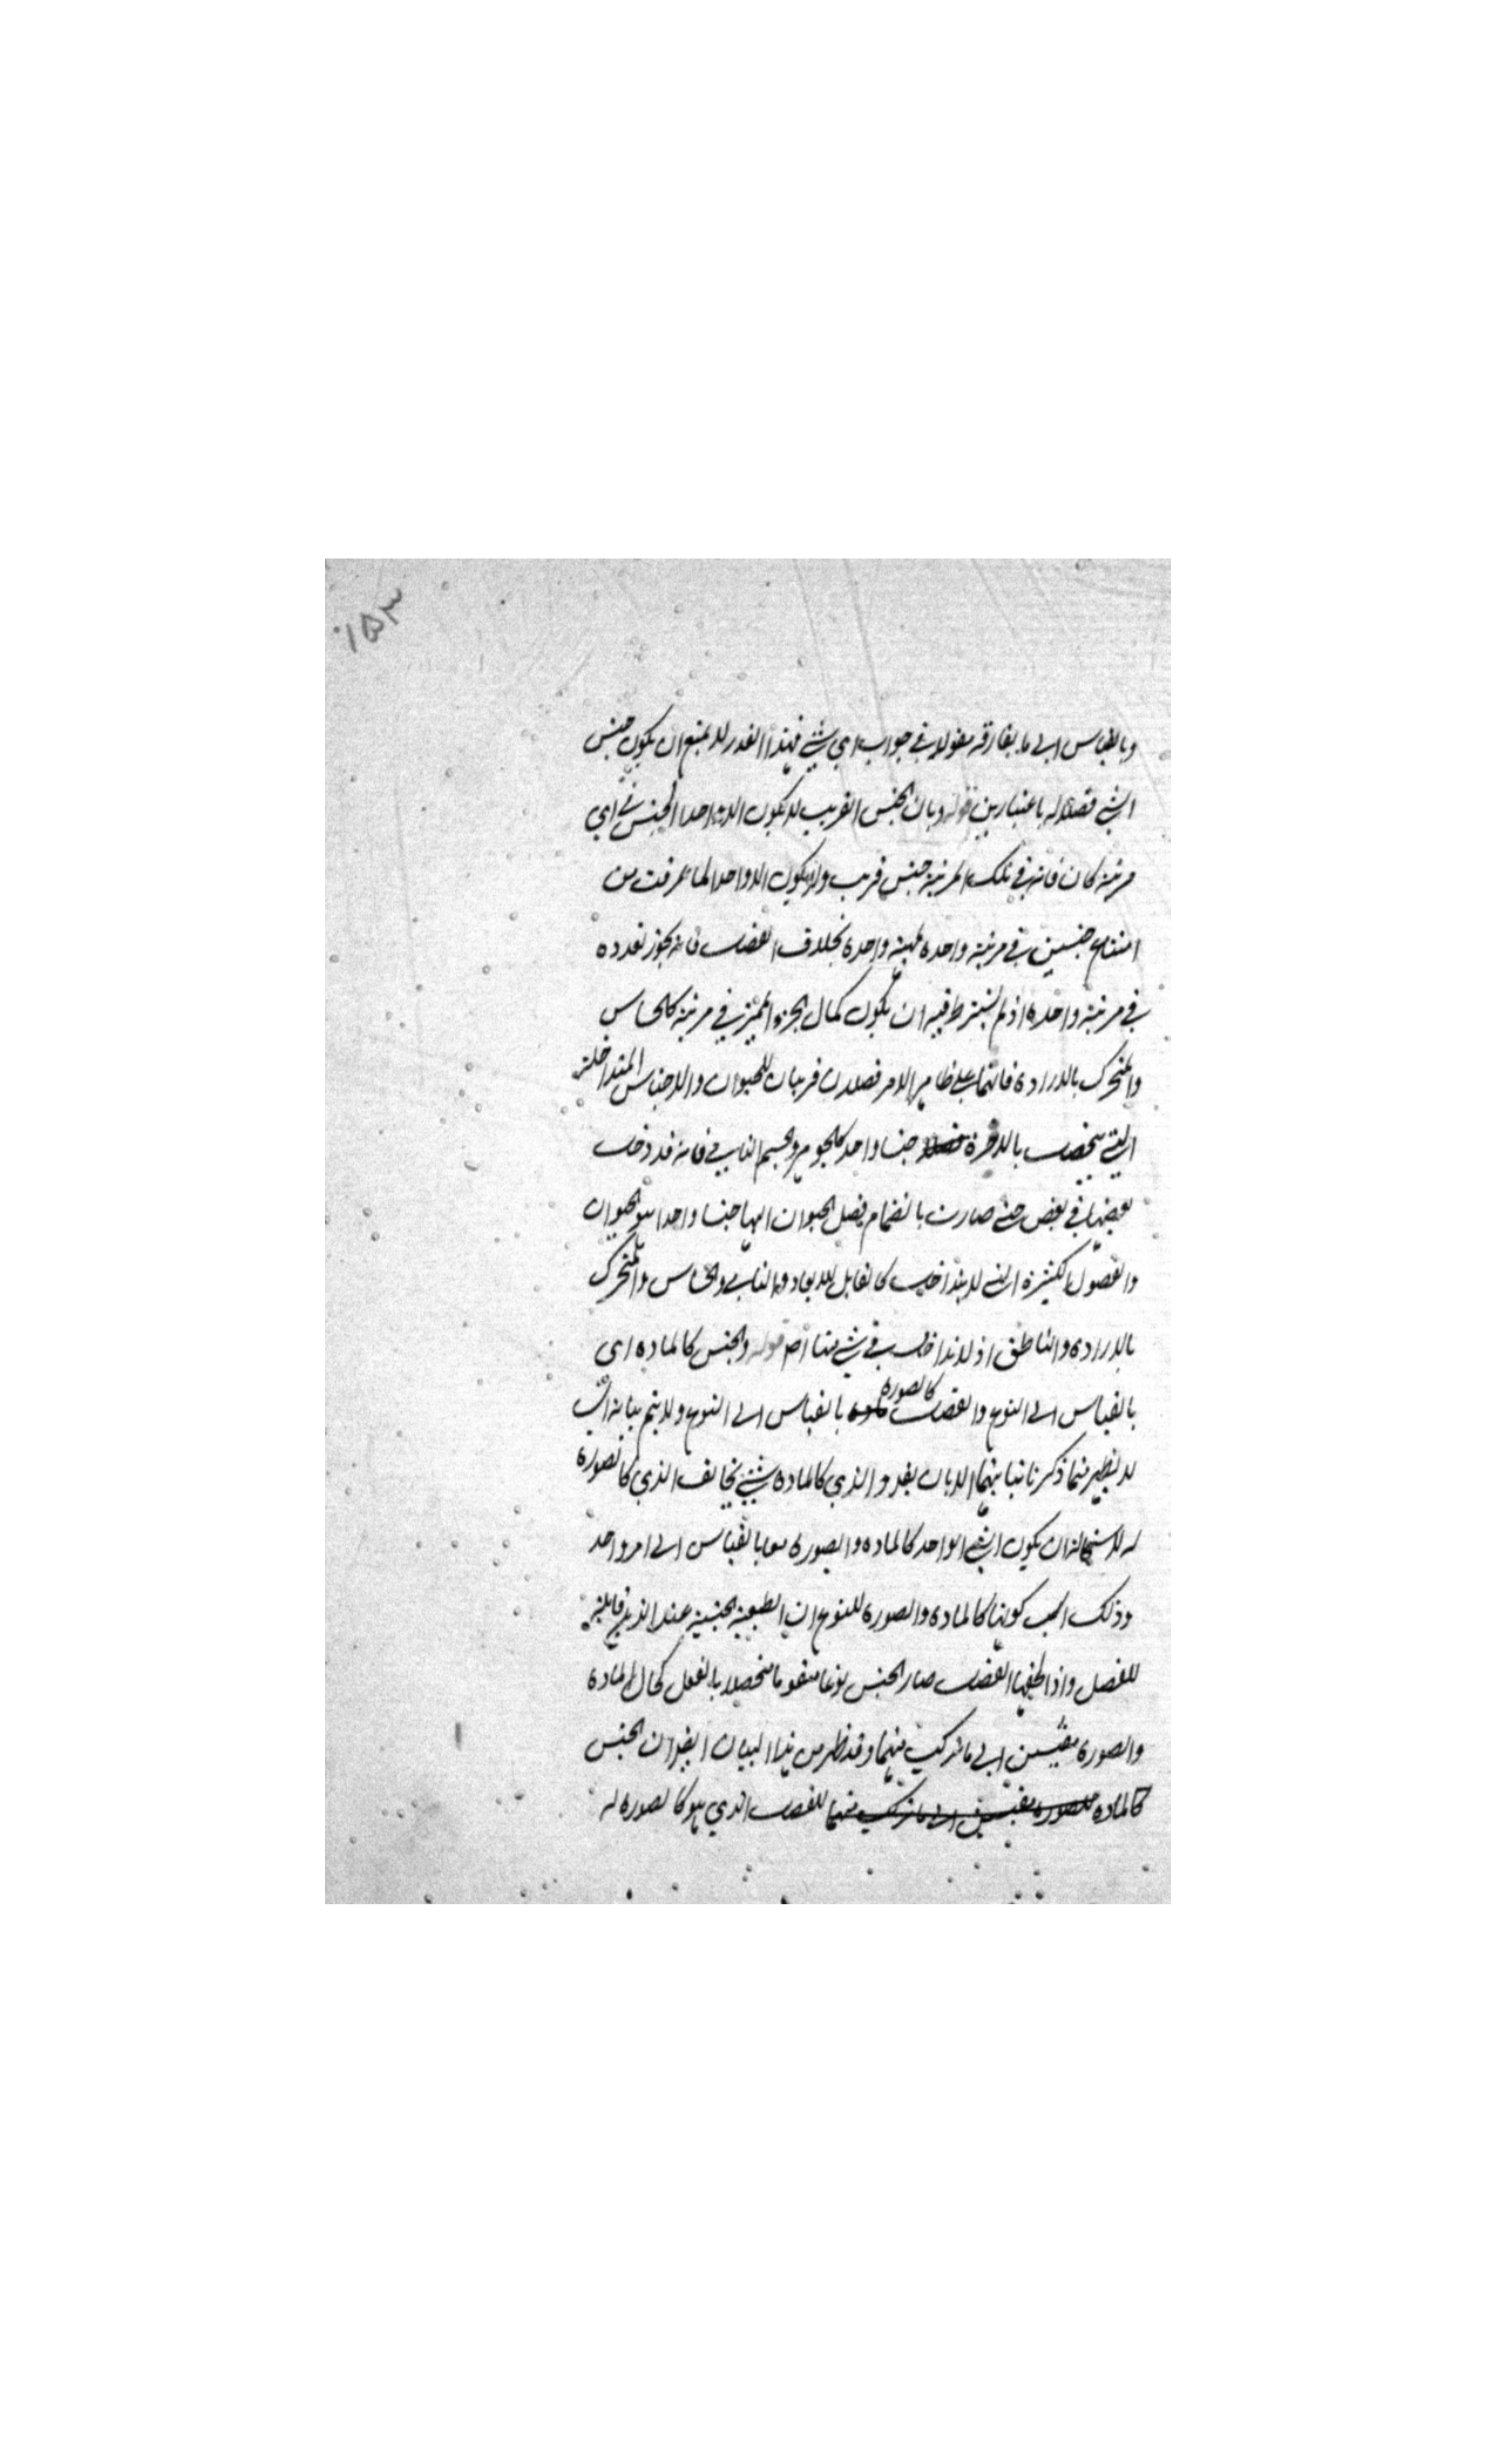 ١٥٣
وبالقياس الى ما يفارقه مقولا في جواب اي شئ فبهذا القدر لا يمتنع ان يكون جنس
الشئ فصلا له باعتبارين قوله وبان الجنس القريب لا يكون الا واحدا الجنس في اي
مرتبة كان فانه في تلك المرتبة جنس قريب ولا يكون الا واحدا لما عرفت من
امتناع جنسين في مرتبة واحدة لمهية واحدة بخلاف الفصل فانه يجوز تعدده
في مرتبة واحدة اذ لم يشترط فيه ان يكون كمال الجزء المميز في مرتبة كالحساس
والمتحرك بالارادة فانهما على ظاهر الامر فصلان قريبان للحيوان والاجناس المتداخلة
التي يتحصل بالاخرة جنسا واحدا كالجوهر والجسم النامي فانه قد دخل
بعضها في بعض حتى صارت بانضمام فصل الحيوان اليها جنسا واحدا هو الحيوان
والفصول الكثيرة التي لا يتداخل كالقابل للابعاد والنامي والحساس والمتحرك
بالارادة والناطق اذ لا تداخل في شئ منها اصلا قوله والجنس كالمادة اي
بالقياس الى النوع والفصل كالصورة بالقياس الى النوع ولا يتم بيانه
لا يظهر مما ذكرنا بينهما الا بان يقدر والذي كالمادة شئ يخالف الذي كالصورة
له لاستحالة ان يكون الشئ الواحد كالمادة والصورة معا بالقياس الى امر واحد
وذلك اي كونها كالمادة والصورة للنوع ان الطبيعة الجنسية عند الذهن قابلة
للفصل واذا لحقها الفصل صار الجنس نوعا متقوما متحصلا بالفعل كحال المادة
والصورة مقيسين الى ما تركب منهما وقد ظهر من هذا البيان ايضا ان الجنس
كالمادة للفصل الذي هو كالصورة له